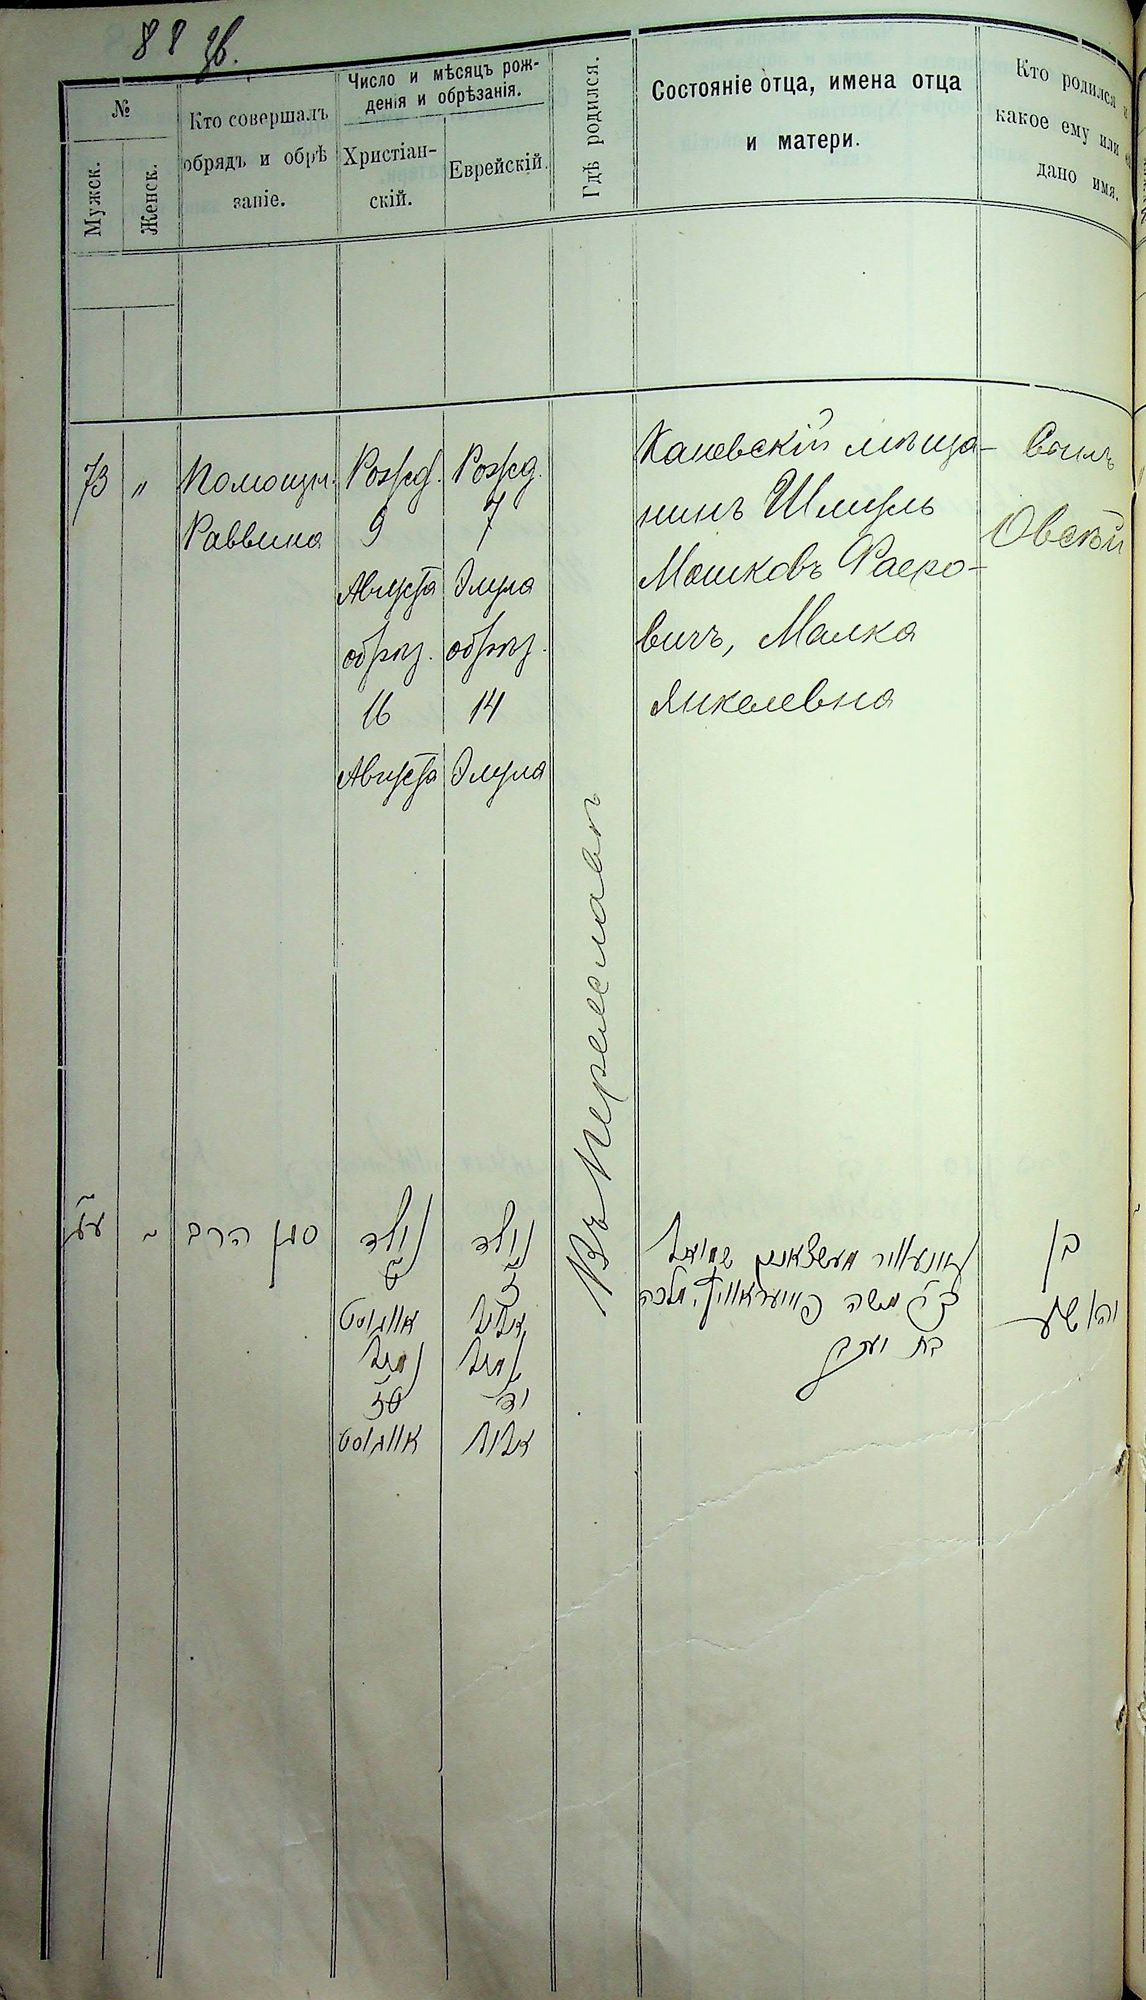 88 зв.
№
Мужск.
Женск.
Кто совершалъ
обрядъ и обрѣ
заніе.
Число и мѣсяцъ рож-
денія и обрѣзанія.
Христіан-
скій.
Еврейскій.
Гдѣ родился.
Состояніе отца, имена отца
и матери.
Кто родился и
какое ему или
дано имя.
73
"
Помощн.
Раввина
Рожд.
9
Августа
обрѣз.
16
Августа
Рожд.
7
Элула
обрѣз.
14
Элула
Въ Переяславѣ
Каневскій мѣща-
нинъ Шмуль
Мошковъ
вичъ, Малка
Янкелевна
Сынъ
Овсѣй
עג
סגן הרב
נולד
ט
אווגוסט
נמול
טז
אווגוסט
נולד
ז
אלול
נמול
יד
אלול
שמואל
משה מלכה
בת יעקב
בן
יהושע